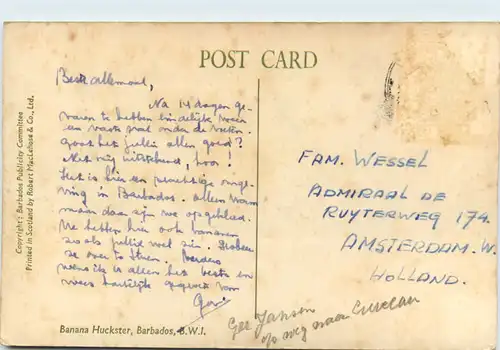 POST CARD
Beste allemaal,
Na 14 dagen ge-
varen te hebben eindelijk weer
een vaste wal onder de voeten.
Gaat het jullie allen goed?
Met mij uitstekend, hoor!
Het is hier een prachtige omge-
ving in Barbados. Alleen warm
maar daar zijn we op gekleed.
We hebben hier ook bananen
zo als jullie wel zien.
ze over te sturen. Verders
wens ik je allen het beste en
wees hartelijk gegroet van
Ger.
Banana Huckster, Barbados, B.W.I.
Copyright: Barbados Publicity Committee
Printed in Scotland by Robert MacLehose & Co., Ltd.
FAM. WESSEL
ADMIRAAL DE
RUYTERWEG 174
AMSTERDAM. W.
HOLLAND.
Ger Jansen
op weg naar Curacau